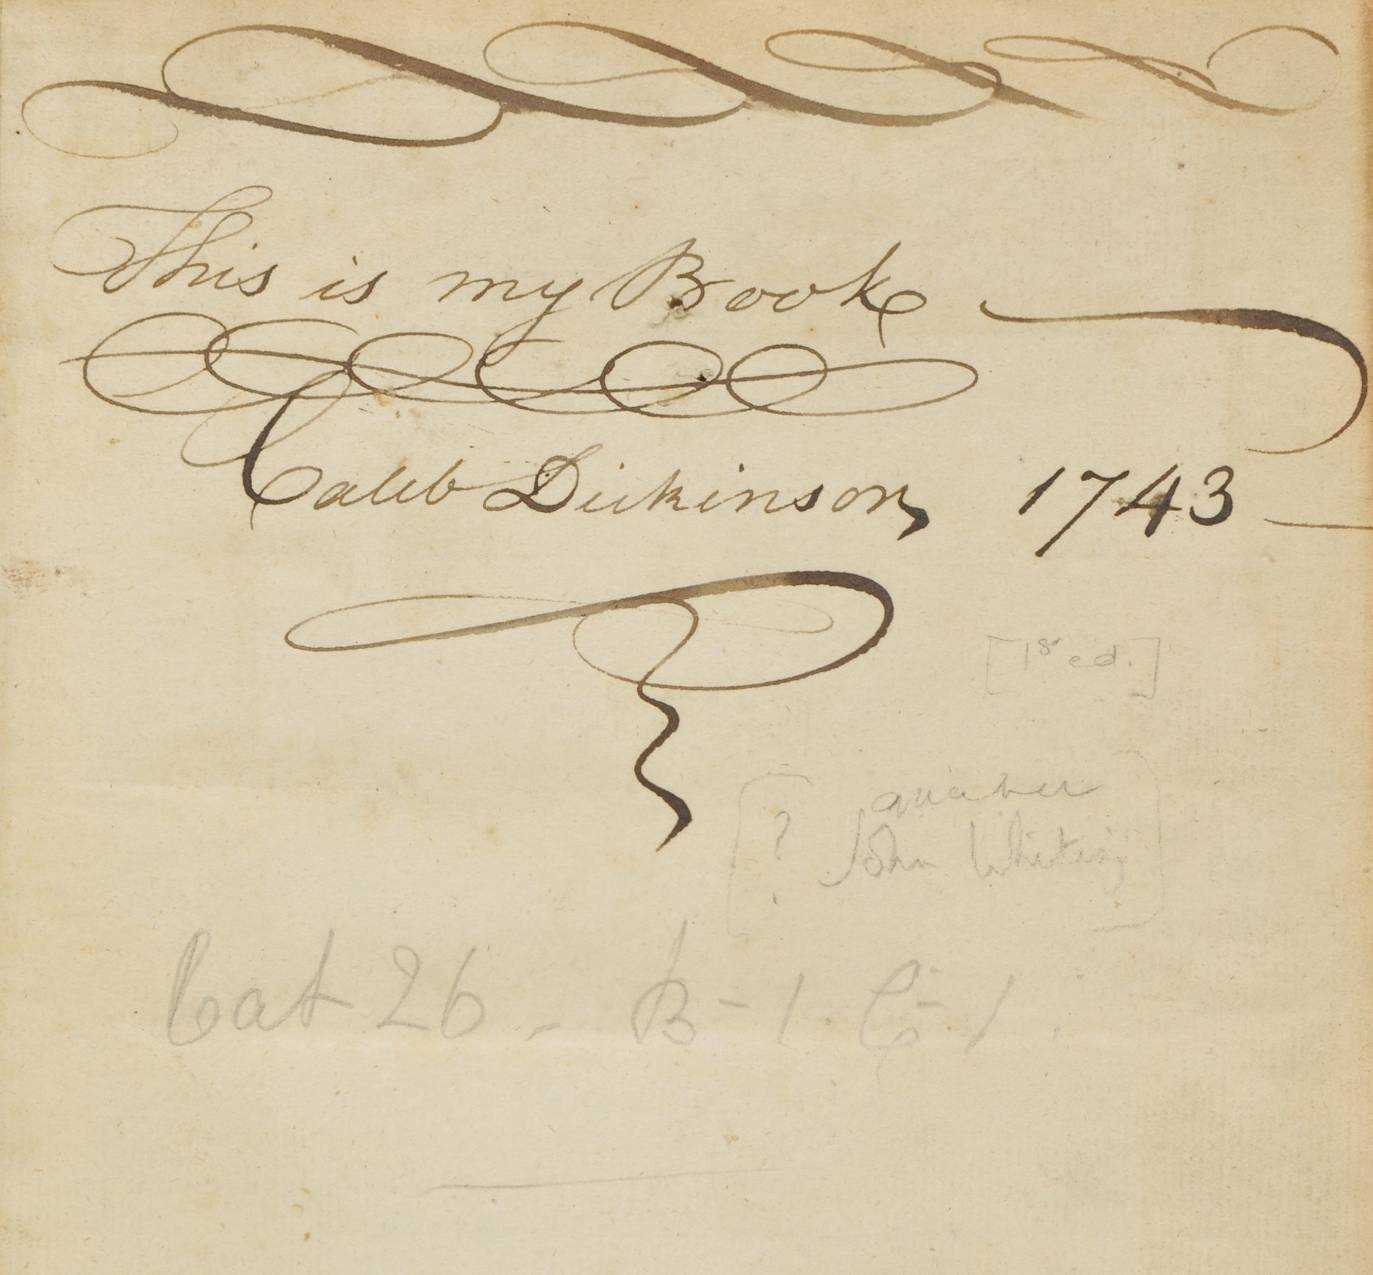 This is my Book
Caleb Dickinson, 1743
[1st ed.]
[? quaker
John Whiting]
Cat 26 - B-1. C-1.